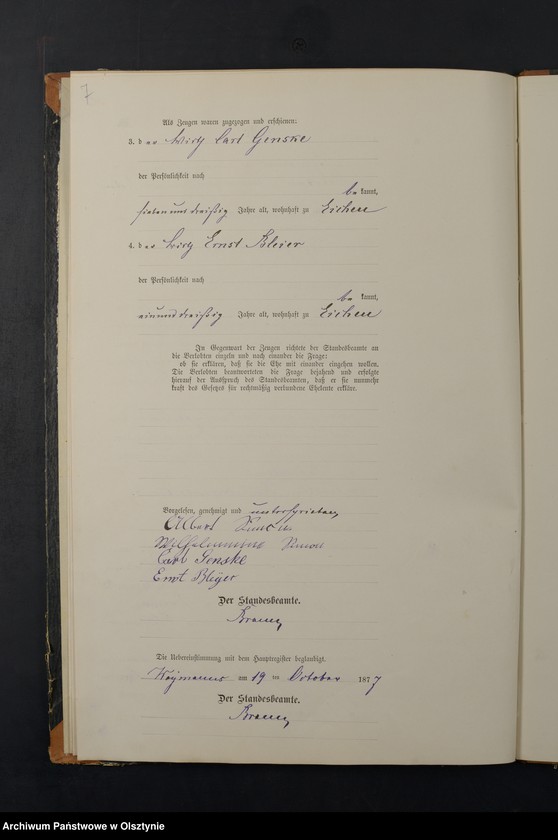 7
Als Zeugen waren zugezogen und erschienen:
3. der Wirth Carl Genske
der Persönlichkeit nach
be kannt,
sieben und dreißig Jahre alt, wohnhaft zu Eichen
4. der Wirth Ernst Bleier
der Persönlichkeit nach
be kannt,
ein und dreißig Jahre alt, wohnhaft zu Eichen
In Gegenwart der Zeugen richtete der Standesbeamte an
die Verlobten einzeln und nach einander die Frage:
ob sie erklären, daß sie die Ehe mit einander eingehen wollen.
Die Verlobten beantworteten die Frage bejahend und erfolgte
hierauf der Ausspruch des Standesbeamten, daß er sie nunmehr
kraft des Gesetzes für rechtmäßig verbundene Eheleute erkläre.
Vorgelesen, genehmigt und unterschrieben
Albert
Wilhelmine Simon
Carl Genske
Ernst Bleyer
Der Standesbeamte.
Die Uebereinstimmung mit dem Hauptregister beglaubigt.
am 19 ten October 1877
Der Standesbeamte.
Archiwum Państwowe w Olsztynie